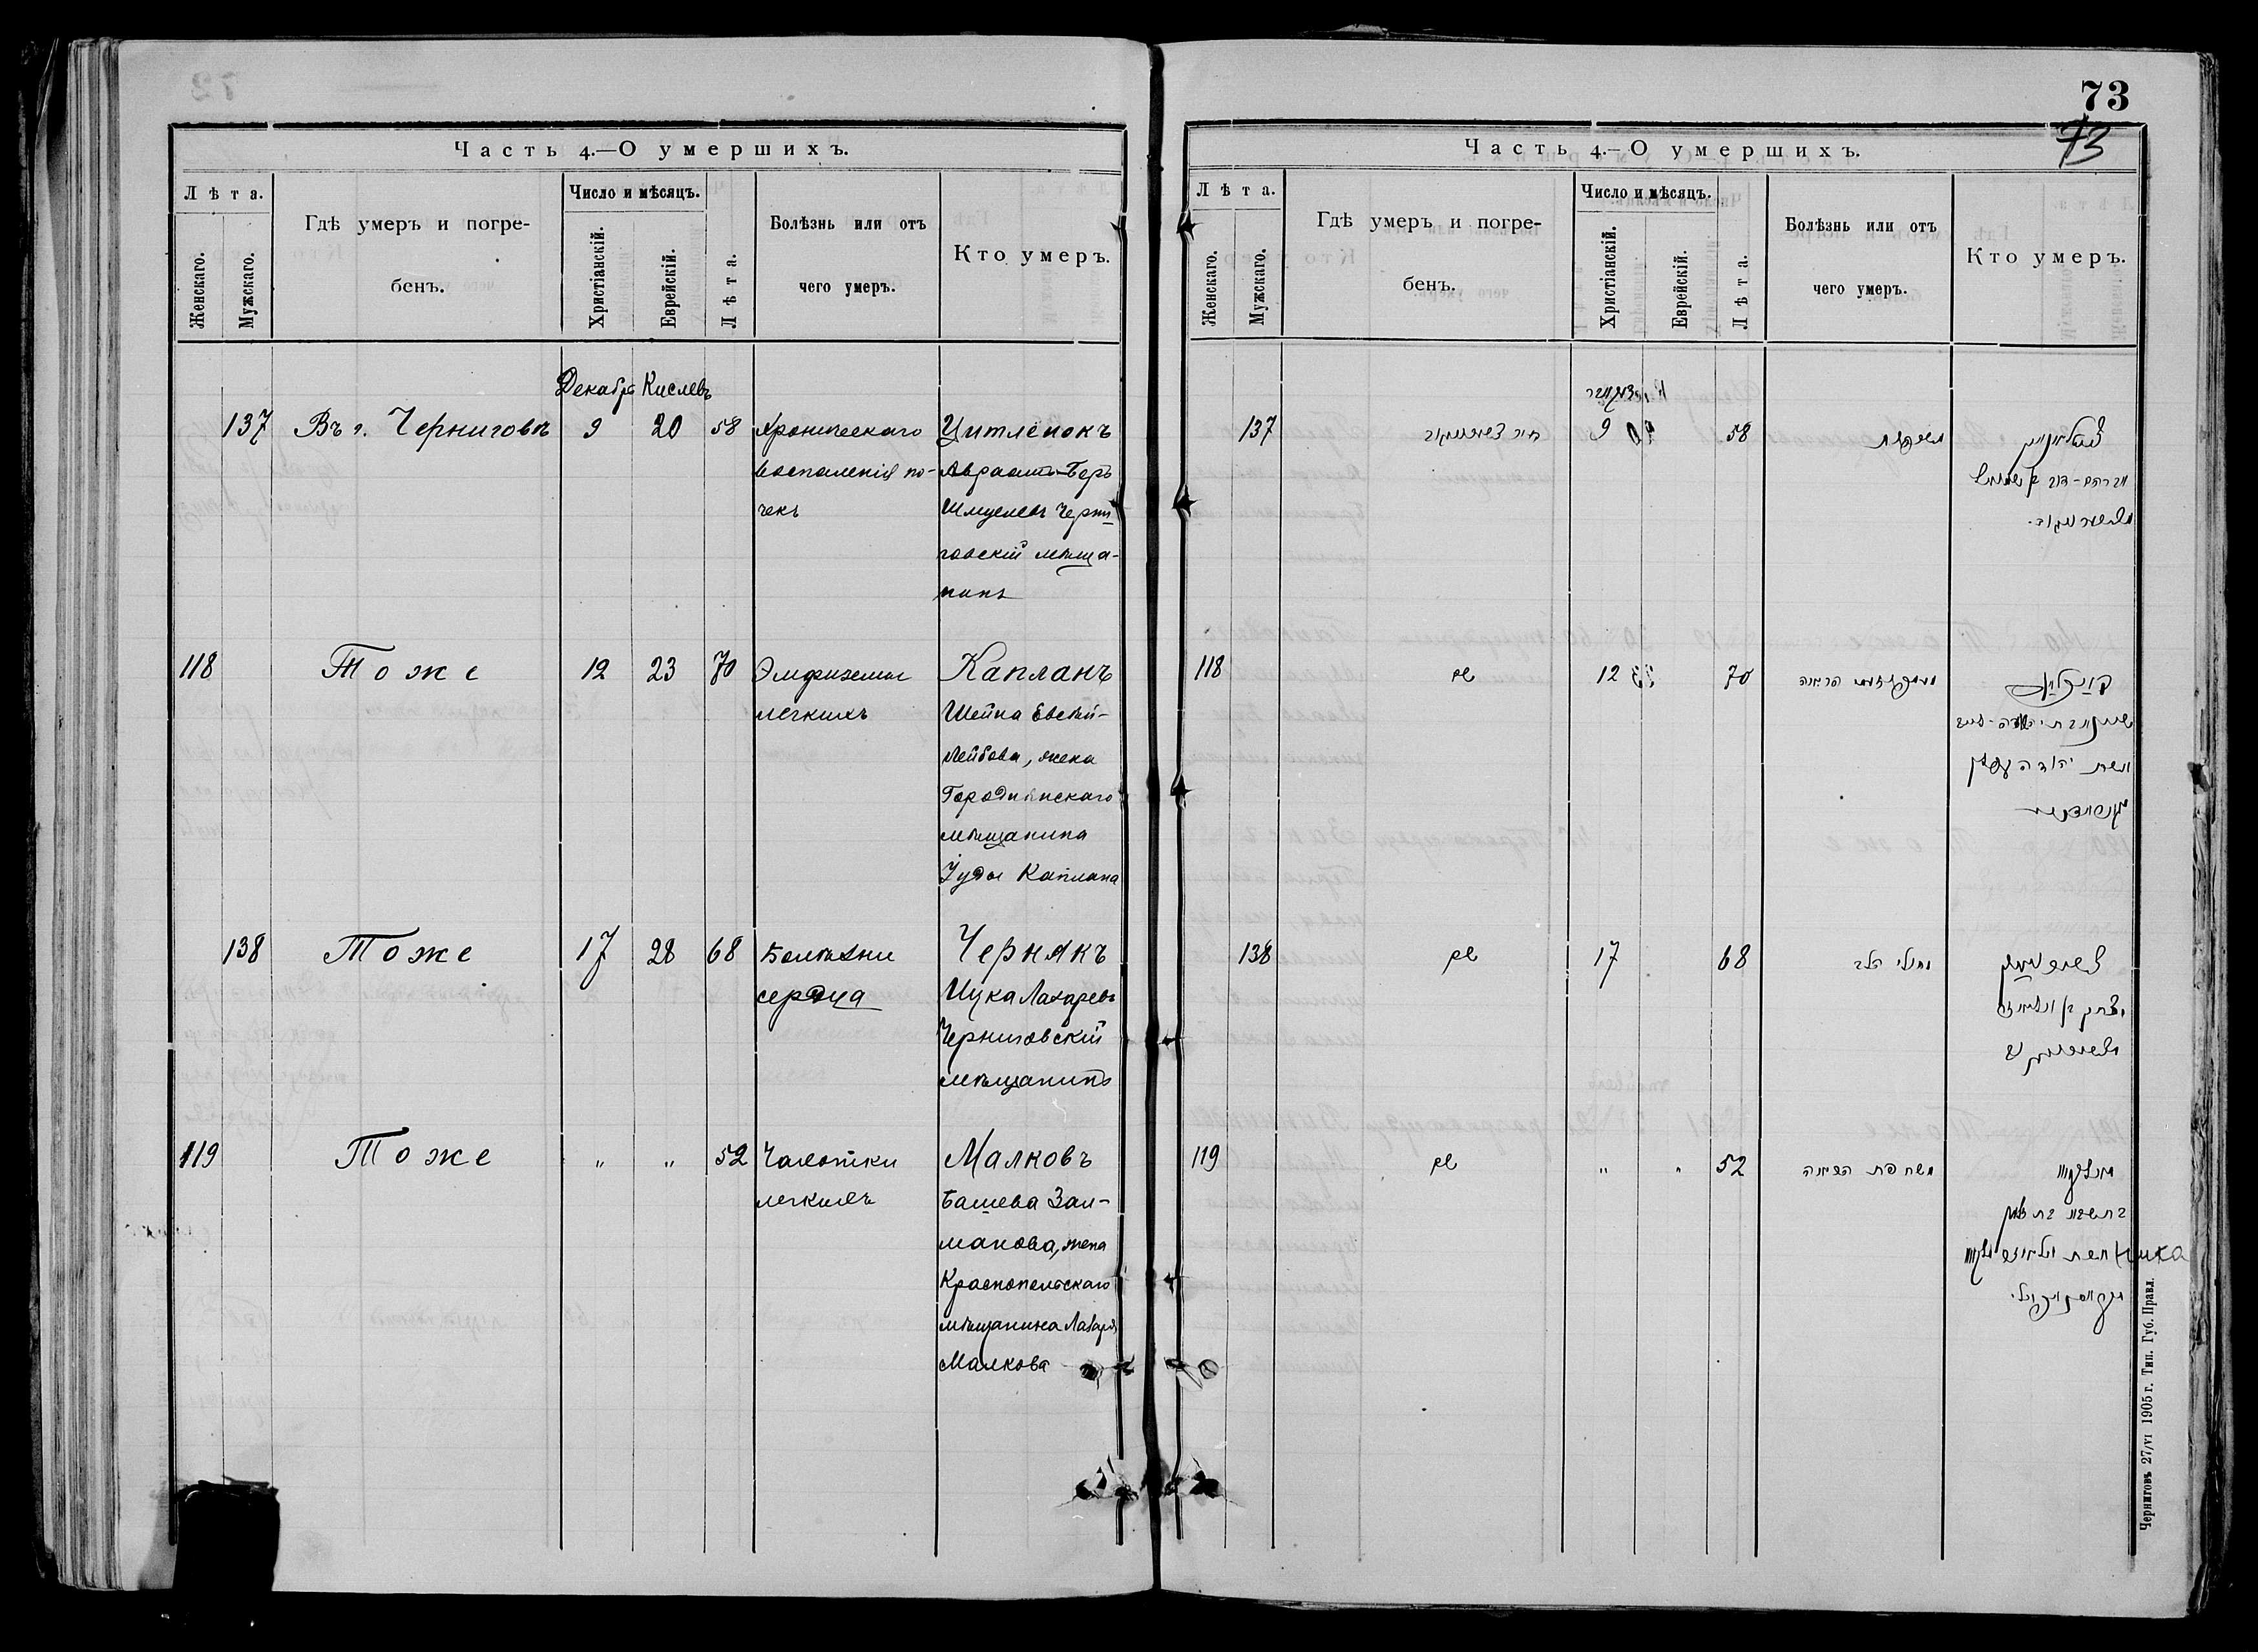 Часть 4.—О умершихъ.
Лѣта.
Женскаго.
Мужскаго.
Гдѣ умеръ и погре-
бенъ.
Число и мѣсяцъ.
Христіанскій.
Еврейскій.
Лѣта.
Болѣзнь или отъ
чего умеръ.
Кто умеръ.
Декабрь Кислевъ
137 Въ г. Черниговѣ 9 20 58 Хроническаго Цитленокъ
воспаленія по- Авраамъ-Беръ
чекъ Шмулевъ Черни
говскій мѣща-
нинъ
118 Тоже 12 23 70 Эмфиземы Капланъ
легкихъ Шейна Евсей-
Лейбова, жена
Городнянскаго
мѣщанина
Іуды Каплана
138 Тоже 17 28 68 Болѣзни Чернякъ
сердца Ицка Лазаревъ
Черниговскій
мѣщанинъ
119 Тоже " " 52 Чахотки Малковъ
легкихъ Башева Зал-
манова, жена
Краснопольскаго
мѣщанина Лазаря
Малкова
73
73
Часть 4.—О умершихъ.
Лѣта.
Женскаго.
Мужскаго.
Гдѣ умеръ и погре-
бенъ.
Число и мѣсяцъ.
Христіанскій.
Еврейскій.
Лѣта.
Болѣзнь или отъ
чего умеръ.
Кто умеръ.
137 9 20 58
118 שם 12 23 70
138 שם 17 68 חולי הלב
119 שם " " 52 שחפת הריאה
Черниговъ 27/VI 1905 г. Тип. Губ. Правл.